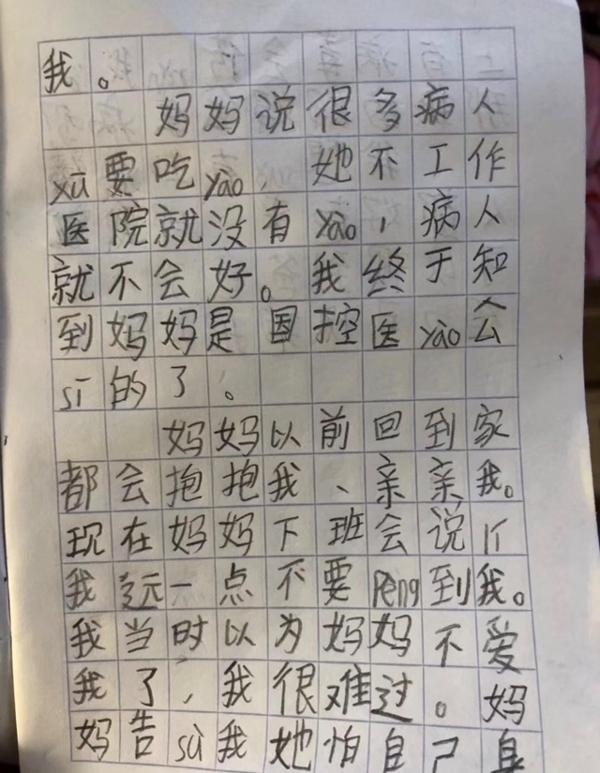 我。
妈妈说很多病人
xū要吃yào，她不工作
医院就没有yào，病人
就不会好。我终于知
到妈妈是国控医yào公
sī的了。
妈妈以前回到家
都会抱抱我、亲亲我。
现在妈妈下班会说
我远一点不要pèng到我。
我当时以为妈妈不爱
我了，我很难过。妈
妈告sù我她怕自己身